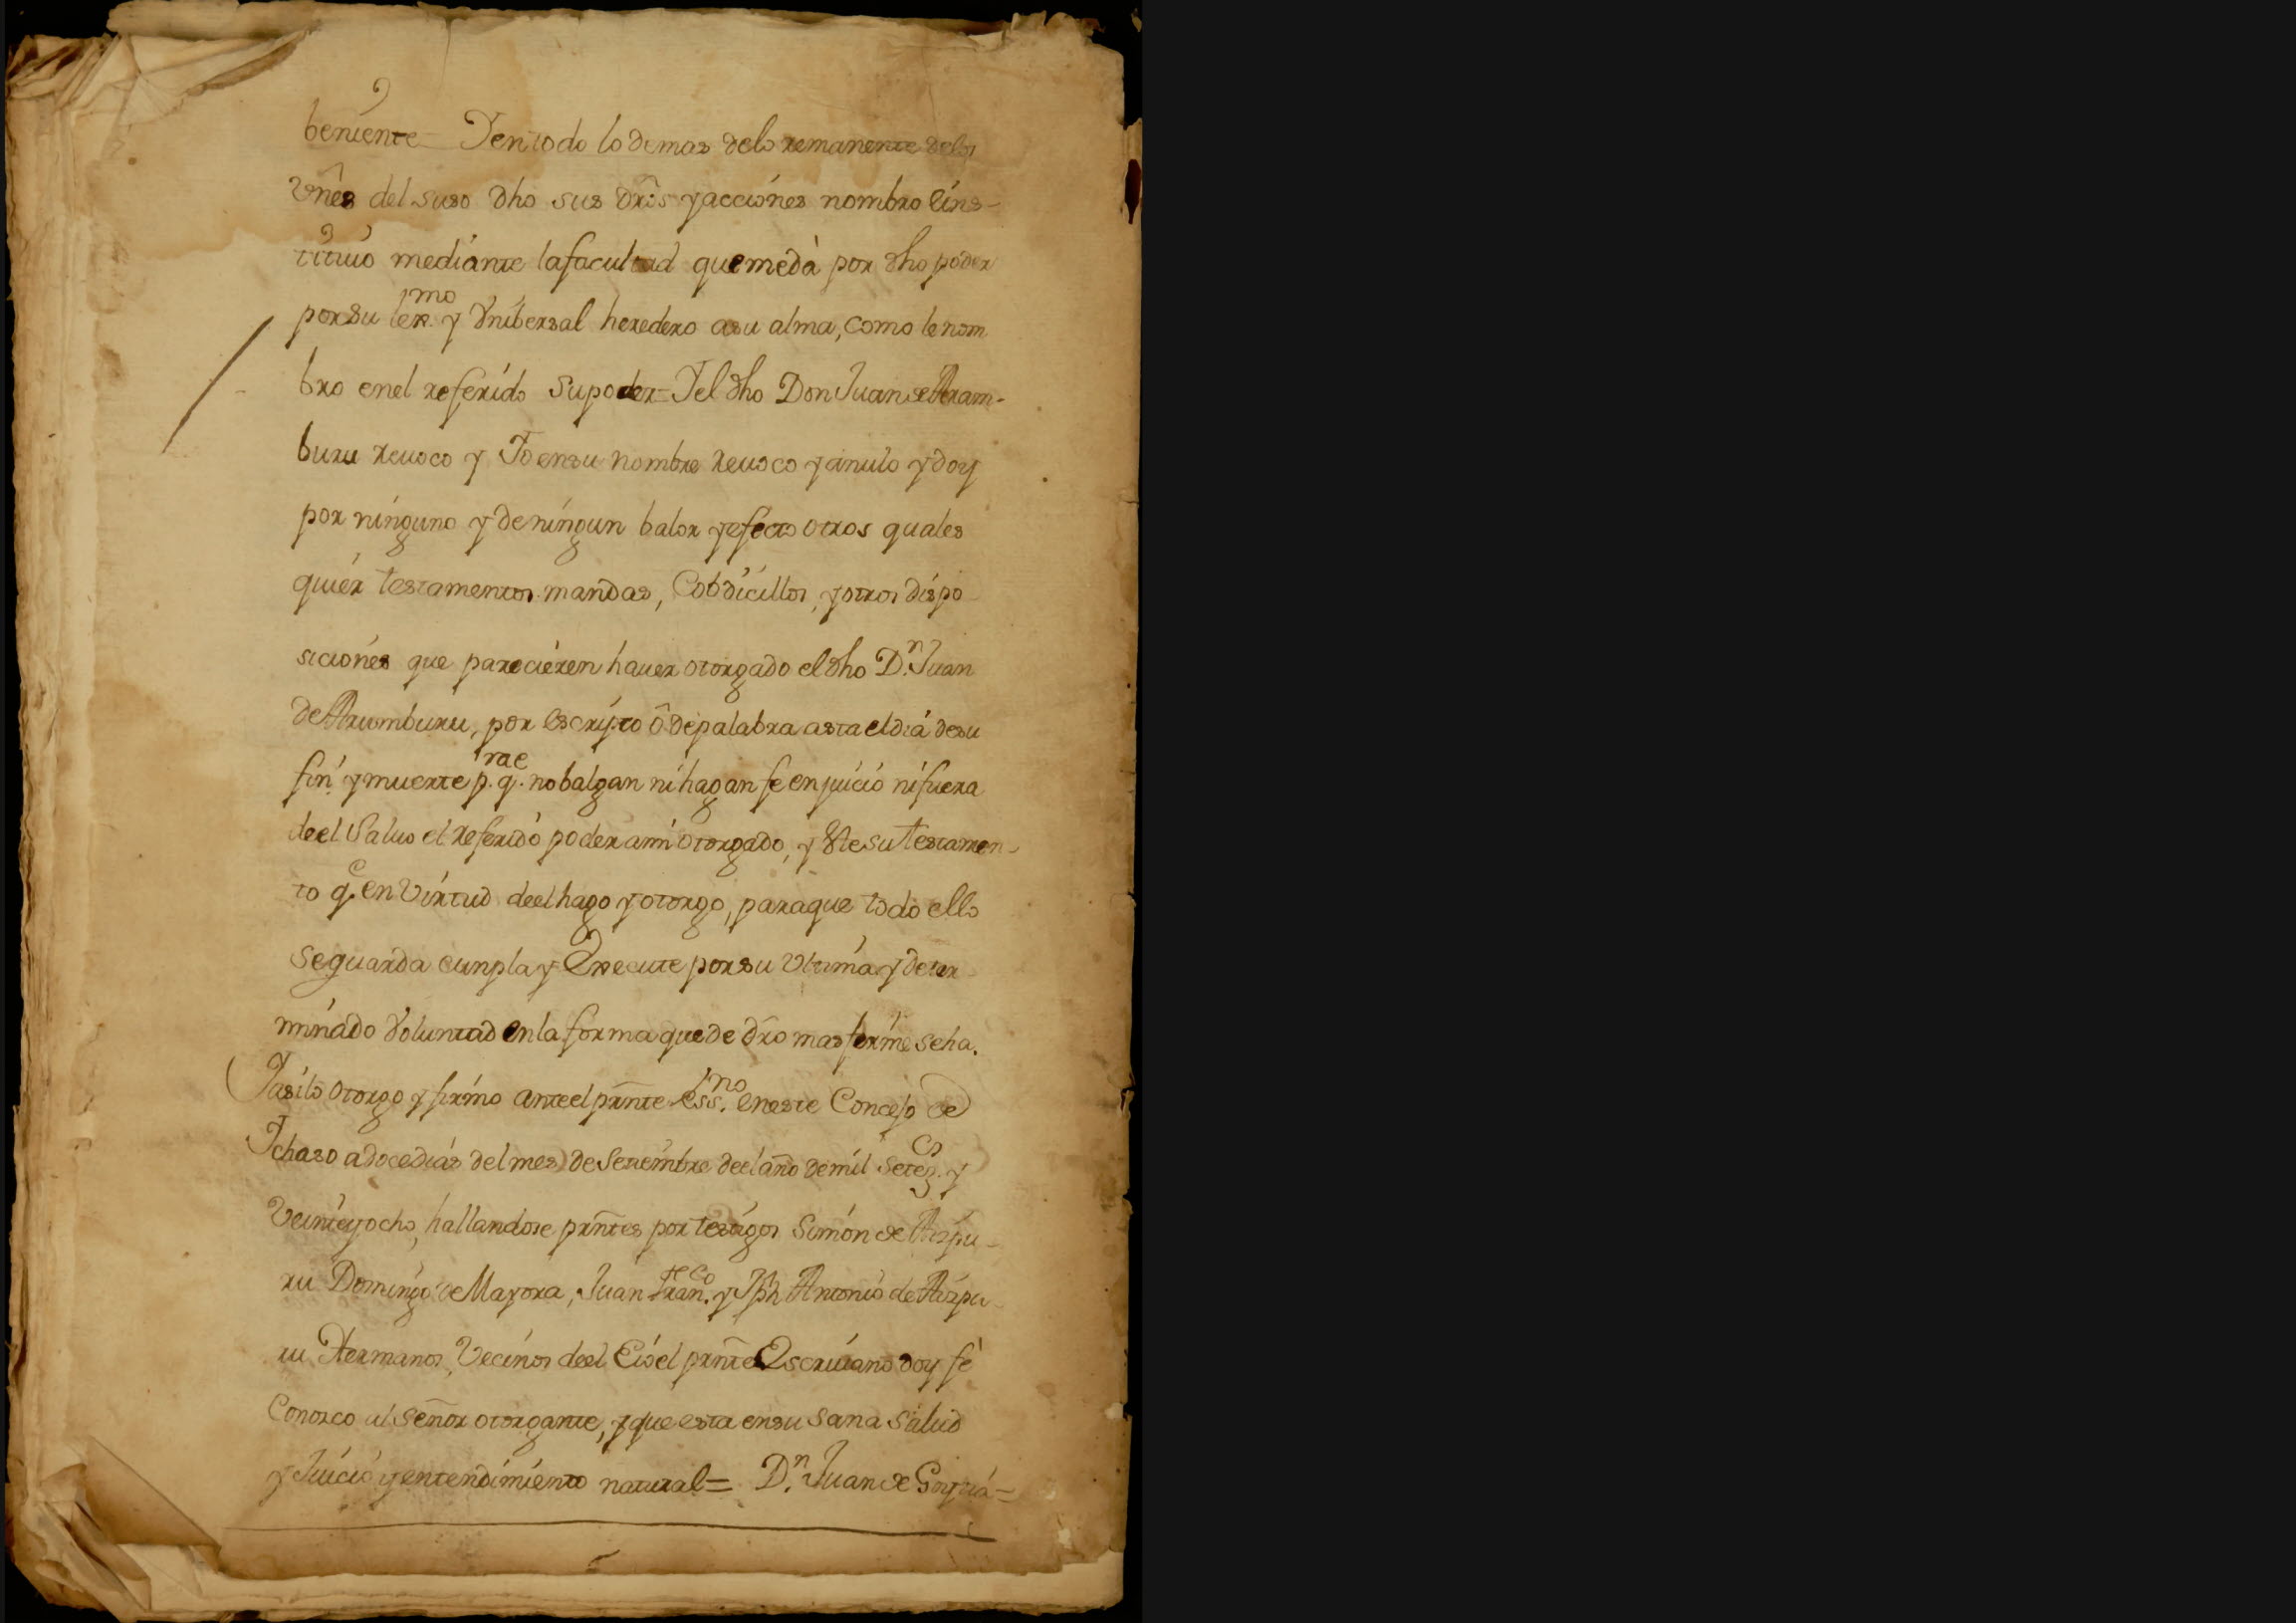 beniente = Y en todo lo demas delo remanente delos
vnês del suso dho sus drôs y acciones nombro e ins-
tituio mediante la facultad que me dà por dho poder
por su lex.mo y Vnibersal heredero a su alma, como le nom
bro en el referido su poder = Y el dho Don Juan de Aram-
buru reuoco y Yo en su nombre reuoco y anulo y doy
por ninguno y de ningun balor y efecto otros quales
quier testamentos mandas, Cobdicillos, y otros dispo
siciones que parecieren hauer otorgado el dho D.n Juan
de Arumburu, por escripto ô de palabra asta el dia de su
fin y muerte p.rae q. no balgan ni hagan fe en juicio ni fuera
de el Saluo el referido poder a mi otorgado, y este su testamen-
to q.e en Virtud de el hago y otorgo, para que todo ello
se guarda cunpla y Execute por su Vltima y deter
minado Voluntad en la forma que de drô mas ferme se ha.
Y asi lo otorgo y firmo ante el prnte ess.no en este Concejo de
Ychaso a doce dias del mes de Setiembre de el año de mil setez.os y
Veinte y ocho, hallandose prntes por testigos Simon de Aizpu-
ru Domingo de Mayora, Juan Fran.co y Jph Antonio de Aizpu-
ru Hermanos, Vecinos de el E io el prnte Escriuano doy fè
Conozco al señor otorgante, y que esta en su sana salud
y Juicio y entendimiento natural = D.n Juan de Goytia =